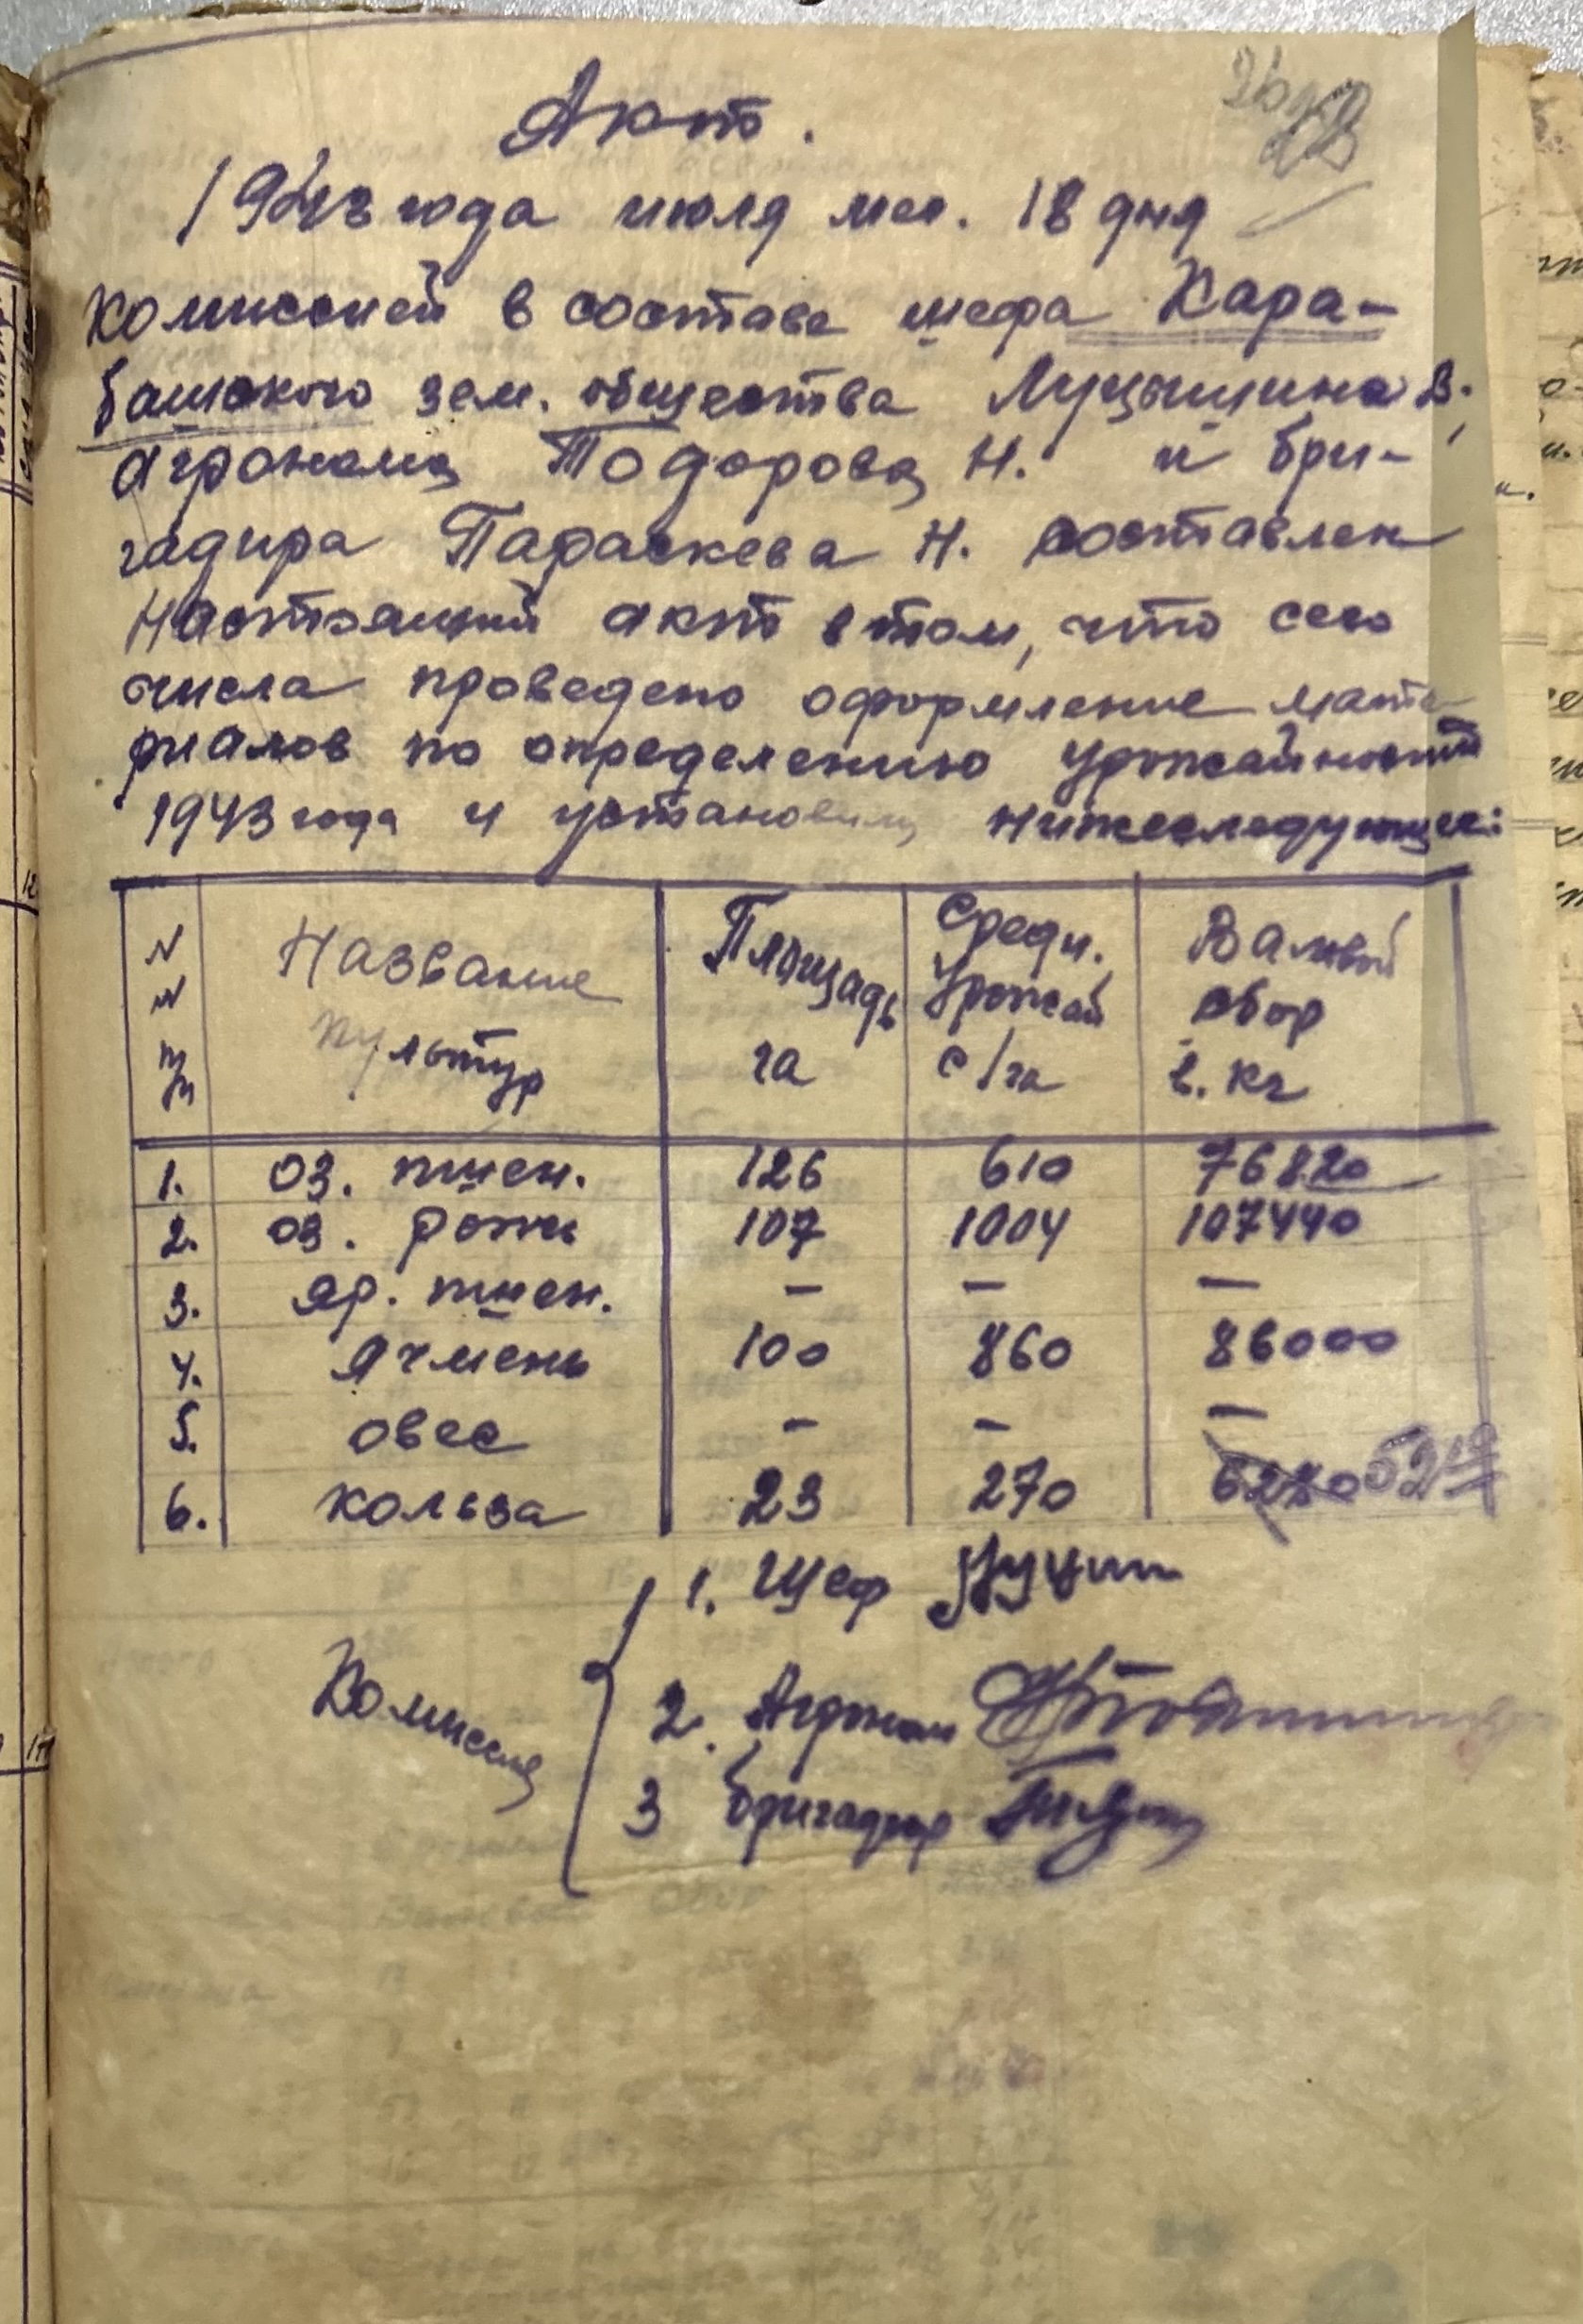 Акт.
1943 года июля мес. 18 дня
комиссией в составе шефа Кара-
башского зем. общества Луцышина В.,
агронома Тодорова Н. и бри-
гадира Параскева Н. составлен
настоящий акт в том, что сего
числа проведено оформление мате-
риалов по определению урожайности
1943 года и установили нижеследующее:
N N п/п Название культур Площадь га Средн. урожай с/га Валовой сбор в. кг
1. оз. пшен. 126 610 76820
2. оз. рожь 107 1004 107440
3. яр. пшен. — — —
4. ячмень 100 860 86000
5. овес — — —
6. кольза 23 270 6280
Комиссия
1. Шеф
2. Агроном
3 Бригадир